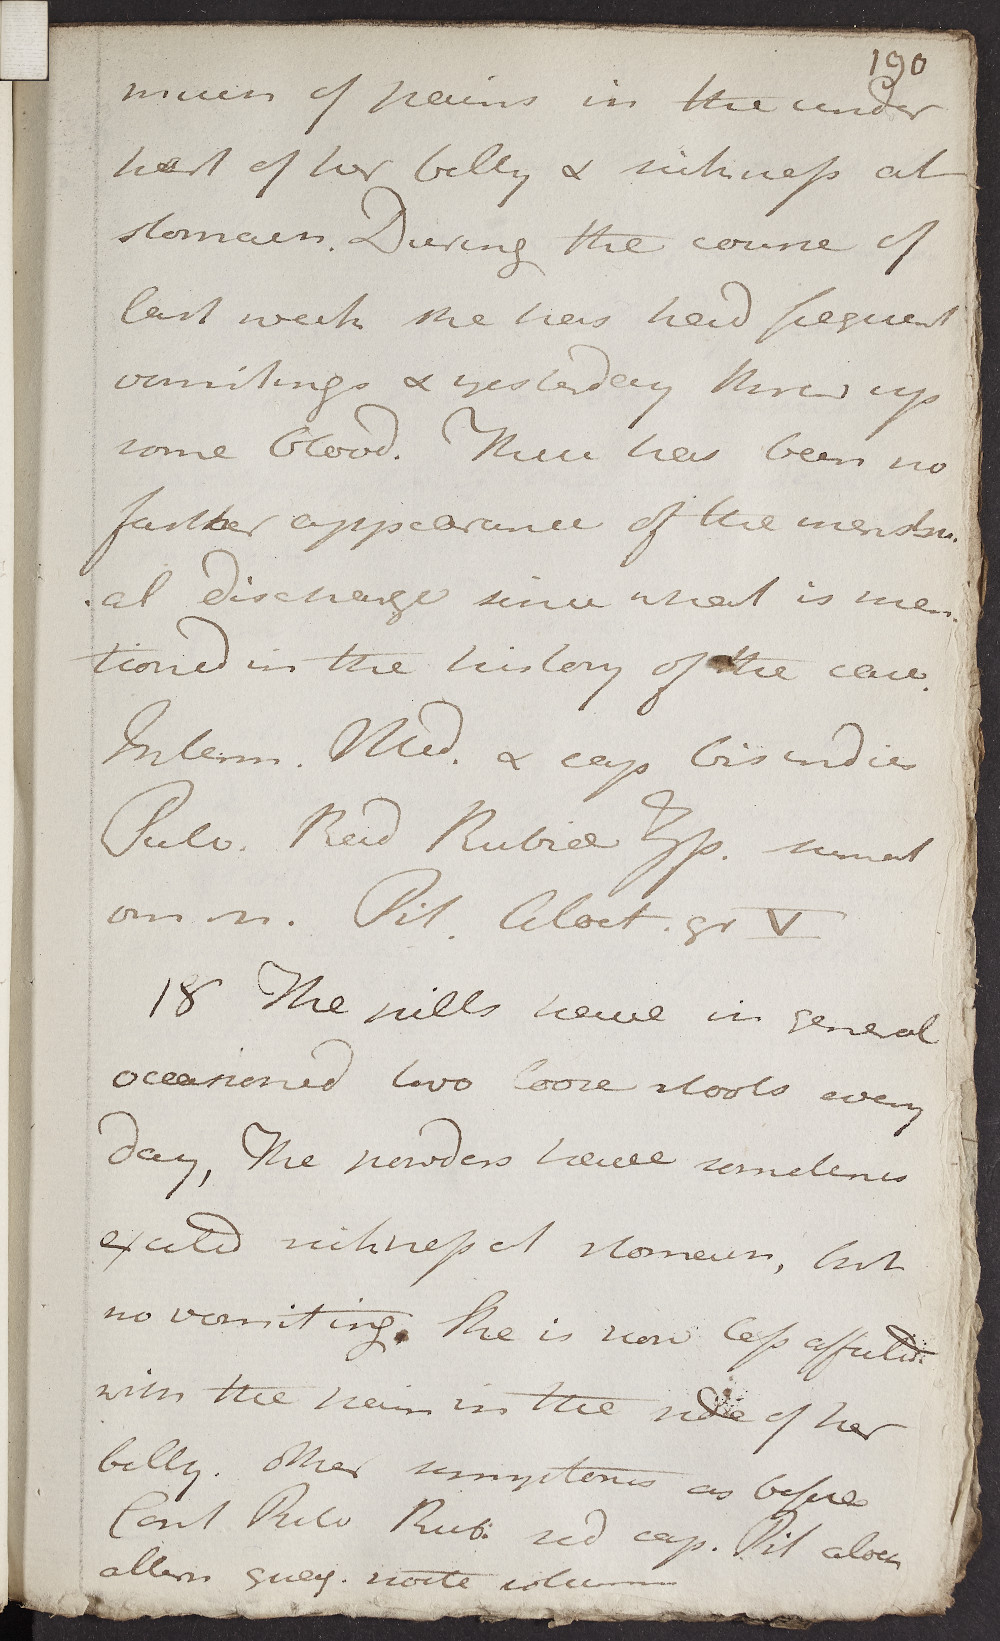 190
much of pains in the under
part of her belly & sickness at
stomach. During the course of
last week she has had frequent
vomitings & yesterday threw up
some blood. There has been no
farther appearance of the menstru-
-al discharge since what is men-
tioned in the history of the case.
Interm. Med. & cap bis indies
Pulv. Rad Rubiæ ʒſs. sumat
om n. Pil. Aloet. gr V
18 The pills have in general
occasioned two loose stools every
day, The powders have sometimes
excited sickness at stomach, but
no vomiting. She is now less affected
with the pain in the side of her
belly. Other symptoms as before
Cont Pulv Rub: sed cap. Pil aloet
altern quaq. nocte solum